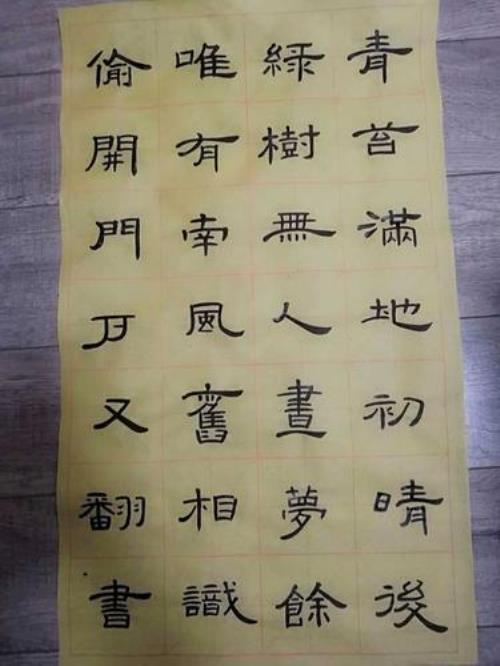 青苔滿地初晴後
綠樹無人晝夢餘
唯有南風舊相識
偷開門戶又翻書